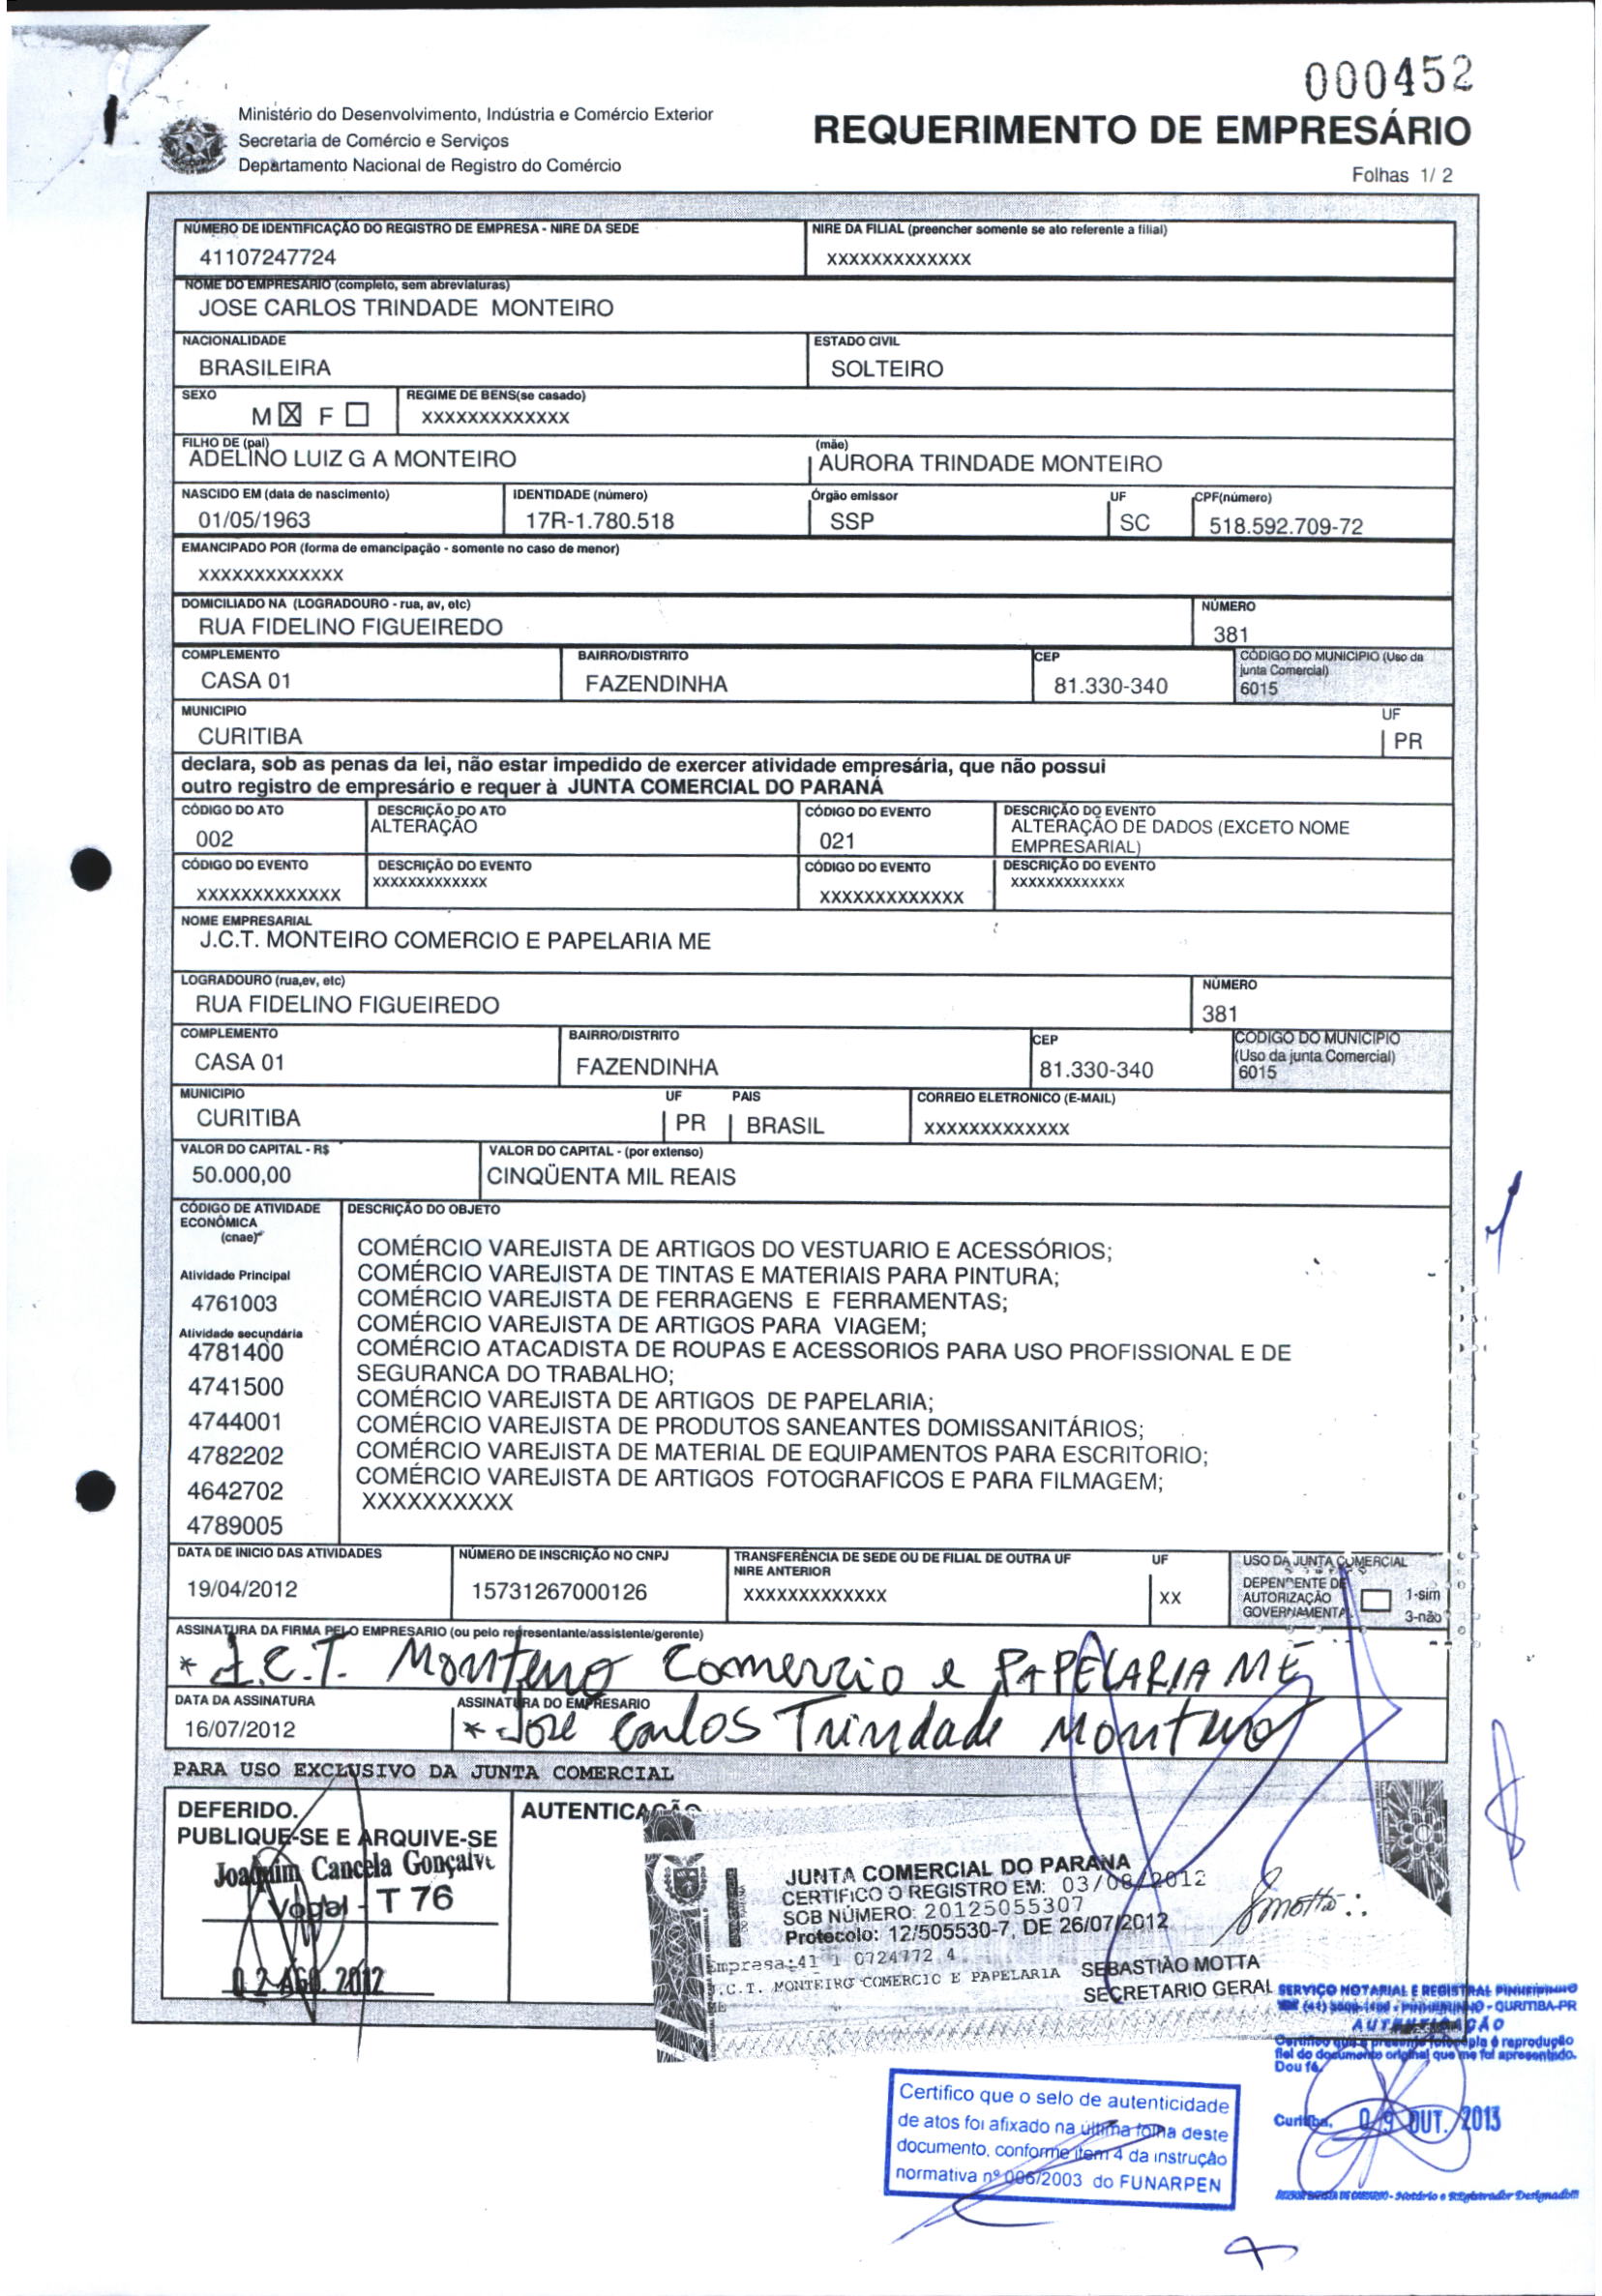 000452
Ministério do Desenvolvimento, Indústria e Comércio Exterior
Secretaria de Comércio e Serviços
Departamento Nacional de Registro do Comércio
REQUERIMENTO DE EMPRESÁRIO
Folhas 1/ 2
NÚMERO DE IDENTIFICAÇÃO DO REGISTRO DE EMPRESA - NIRE DA SEDE
41107247724
NIRE DA FILIAL (preencher somente se ato referente a filial)
XXXXXXXXXXXXX
NOME DO EMPRESÁRIO (completo, sem abreviaturas)
JOSE CARLOS TRINDADE MONTEIRO
NACIONALIDADE
BRASILEIRA
ESTADO CIVIL
SOLTEIRO
SEXO
M X F
REGIME DE BENS(se casado)
XXXXXXXXXXXXX
FILHO DE (pai)
ADELINO LUIZ G A MONTEIRO
(mãe)
AURORA TRINDADE MONTEIRO
NASCIDO EM (data de nascimento)
01/05/1963
IDENTIDADE (número)
17R-1.780.518
Órgão emissor
SSP
UF
SC
CPF(número)
518.592.709-72
EMANCIPADO POR (forma de emancipação - somente no caso de menor)
XXXXXXXXXXXXX
DOMICILIADO NA (LOGRADOURO - rua, av, etc)
RUA FIDELINO FIGUEIREDO
NÚMERO
381
COMPLEMENTO
CASA 01
BAIRRO/DISTRITO
FAZENDINHA
CEP
81.330-340
CÓDIGO DO MUNICIPIO (Uso da
junta Comercial)
6015
MUNICIPIO
CURITIBA
UF
PR
declara, sob as penas da lei, não estar impedido de exercer atividade empresária, que não possui
outro registro de empresário e requer à JUNTA COMERCIAL DO PARANÁ
CÓDIGO DO ATO
002
DESCRIÇÃO DO ATO
ALTERAÇÃO
CÓDIGO DO EVENTO
021
DESCRIÇÃO DO EVENTO
ALTERAÇÃO DE DADOS (EXCETO NOME
EMPRESARIAL)
CÓDIGO DO EVENTO
XXXXXXXXXXXXX
DESCRIÇÃO DO EVENTO
XXXXXXXXXXXXX
CÓDIGO DO EVENTO
XXXXXXXXXXXXX
DESCRIÇÃO DO EVENTO
XXXXXXXXXXXXX
NOME EMPRESARIAL
J.C.T. MONTEIRO COMERCIO E PAPELARIA ME
LOGRADOURO (rua,ev, etc)
RUA FIDELINO FIGUEIREDO
NÚMERO
381
COMPLEMENTO
CASA 01
BAIRRO/DISTRITO
FAZENDINHA
CEP
81.330-340
CODIGO DO MUNICIPIO
(Uso da junta Comercial)
6015
MUNICIPIO
CURITIBA
UF
PR
PAIS
BRASIL
CORREIO ELETRONICO (E-MAIL)
XXXXXXXXXXXXX
VALOR DO CAPITAL - R$
50.000,00
VALOR DO CAPITAL - (por extenso)
CINQÜENTA MIL REAIS
CÓDIGO DE ATIVIDADE
ECONÔMICA
(cnae)*
Atividade Principal
4761003
Atividade secundária
4781400
4741500
4744001
4782202
4642702
4789005
DESCRIÇÃO DO OBJETO
COMÉRCIO VAREJISTA DE ARTIGOS DO VESTUARIO E ACESSÓRIOS;
COMÉRCIO VAREJISTA DE TINTAS E MATERIAIS PARA PINTURA;
COMÉRCIO VAREJISTA DE FERRAGENS E FERRAMENTAS;
COMÉRCIO VAREJISTA DE ARTIGOS PARA VIAGEM;
COMÉRCIO ATACADISTA DE ROUPAS E ACESSORIOS PARA USO PROFISSIONAL E DE
SEGURANCA DO TRABALHO;
COMÉRCIO VAREJISTA DE ARTIGOS DE PAPELARIA;
COMÉRCIO VAREJISTA DE PRODUTOS SANEANTES DOMISSANITÁRIOS;
COMÉRCIO VAREJISTA DE MATERIAL DE EQUIPAMENTOS PARA ESCRITORIO;
COMÉRCIO VAREJISTA DE ARTIGOS FOTOGRAFICOS E PARA FILMAGEM;
XXXXXXXXXX
DATA DE INICIO DAS ATIVIDADES
19/04/2012
NÚMERO DE INSCRIÇÃO NO CNPJ
15731267000126
TRANSFERÊNCIA DE SEDE OU DE FILIAL DE OUTRA UF
NIRE ANTERIOR
XXXXXXXXXXXXX
UF
XX
USO DA JUNTA COMERCIAL
DEPENDENTE DE
AUTORIZAÇÃO
GOVERNAMENTAL
1-sim
3-não
ASSINATURA DA FIRMA PELO EMPRESARIO (ou pelo representante/assistente/gerente)
* J.C.T. Monteiro Comercio e PAPELARIA ME
DATA DA ASSINATURA
16/07/2012
ASSINATURA DO EMPRESARIO
* José Carlos Trindade Monteiro
PARA USO EXCLUSIVO DA JUNTA COMERCIAL
DEFERIDO.
PUBLIQUE-SE E ARQUIVE-SE
Joaquim Cancela Gonçalve
Vogal - T 76
02 AGO. 2012
AUTENTICAÇÃO
JUNTA COMERCIAL DO PARANA
CERTIFICO O REGISTRO EM: 03/08/2012
SOB NÚMERO: 20125055307
Protocolo: 12/505530-7, DE 26/07/2012
Empresa:41 1 0724772 4
J.C.T. MONTEIRO COMERCIO E PAPELARIA
SEBASTIÃO MOTTA
SECRETARIO GERAL
SERVIÇO NOTARIAL E REGISTRAL PINHEIRINHO
PINHEIRINHO - CURITIBA-PR
AUTENTICAÇÃO
Certifico que a presente fotocópia é reprodução
fiel do documento original que me foi apresentado.
Dou fé.
Curitiba, 09 OUT. 2013
Notário e Registrador Designado
Certifico que o selo de autenticidade
de atos foi afixado na última folha deste
documento, conforme item 4 da instrução
normativa nº 006/2003 do FUNARPEN